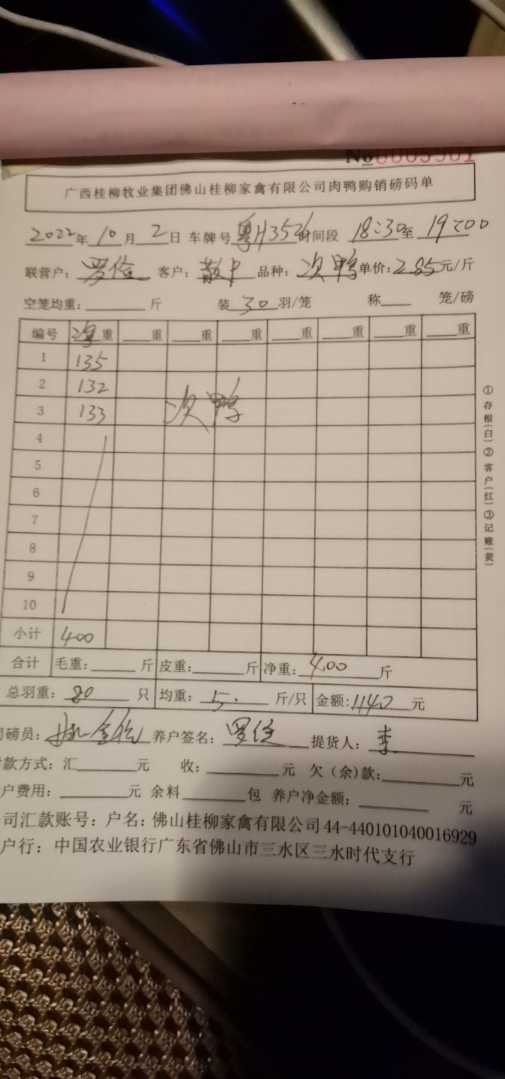 No
广西桂柳牧业集团佛山桂柳家禽有限公司肉鸭购销磅码单
2022年 10月 2日 车牌号 粤 时间段 18:30至 19:00
联营户: 客户: 散户 品种: 次鸭 单价: 2.85元/斤
空笼均重: 斤 装 30 羽/笼 称 笼/磅
编号 净重 重 重 重 重 重 重 重
1 135
2 132
3 133 次鸭
4
5
6
7
8
9
10
小计 400
合计 毛重: 斤 皮重: 斤 净重: 400 斤
总羽重: 80 只 均重: 5. 斤/只 金额: 1140 元
磅员: 养户签名: 提货人: 李
款方式: 汇 元 收: 元 欠(余)款: 元
户费用: 元 余料 包 养户净金额: 元
司汇款账号: 户名: 佛山桂柳家禽有限公司 44-440101040016929
户行: 中国农业银行广东省佛山市三水区三水时代支行
①存根(白)②客户(红)③记账(黄)